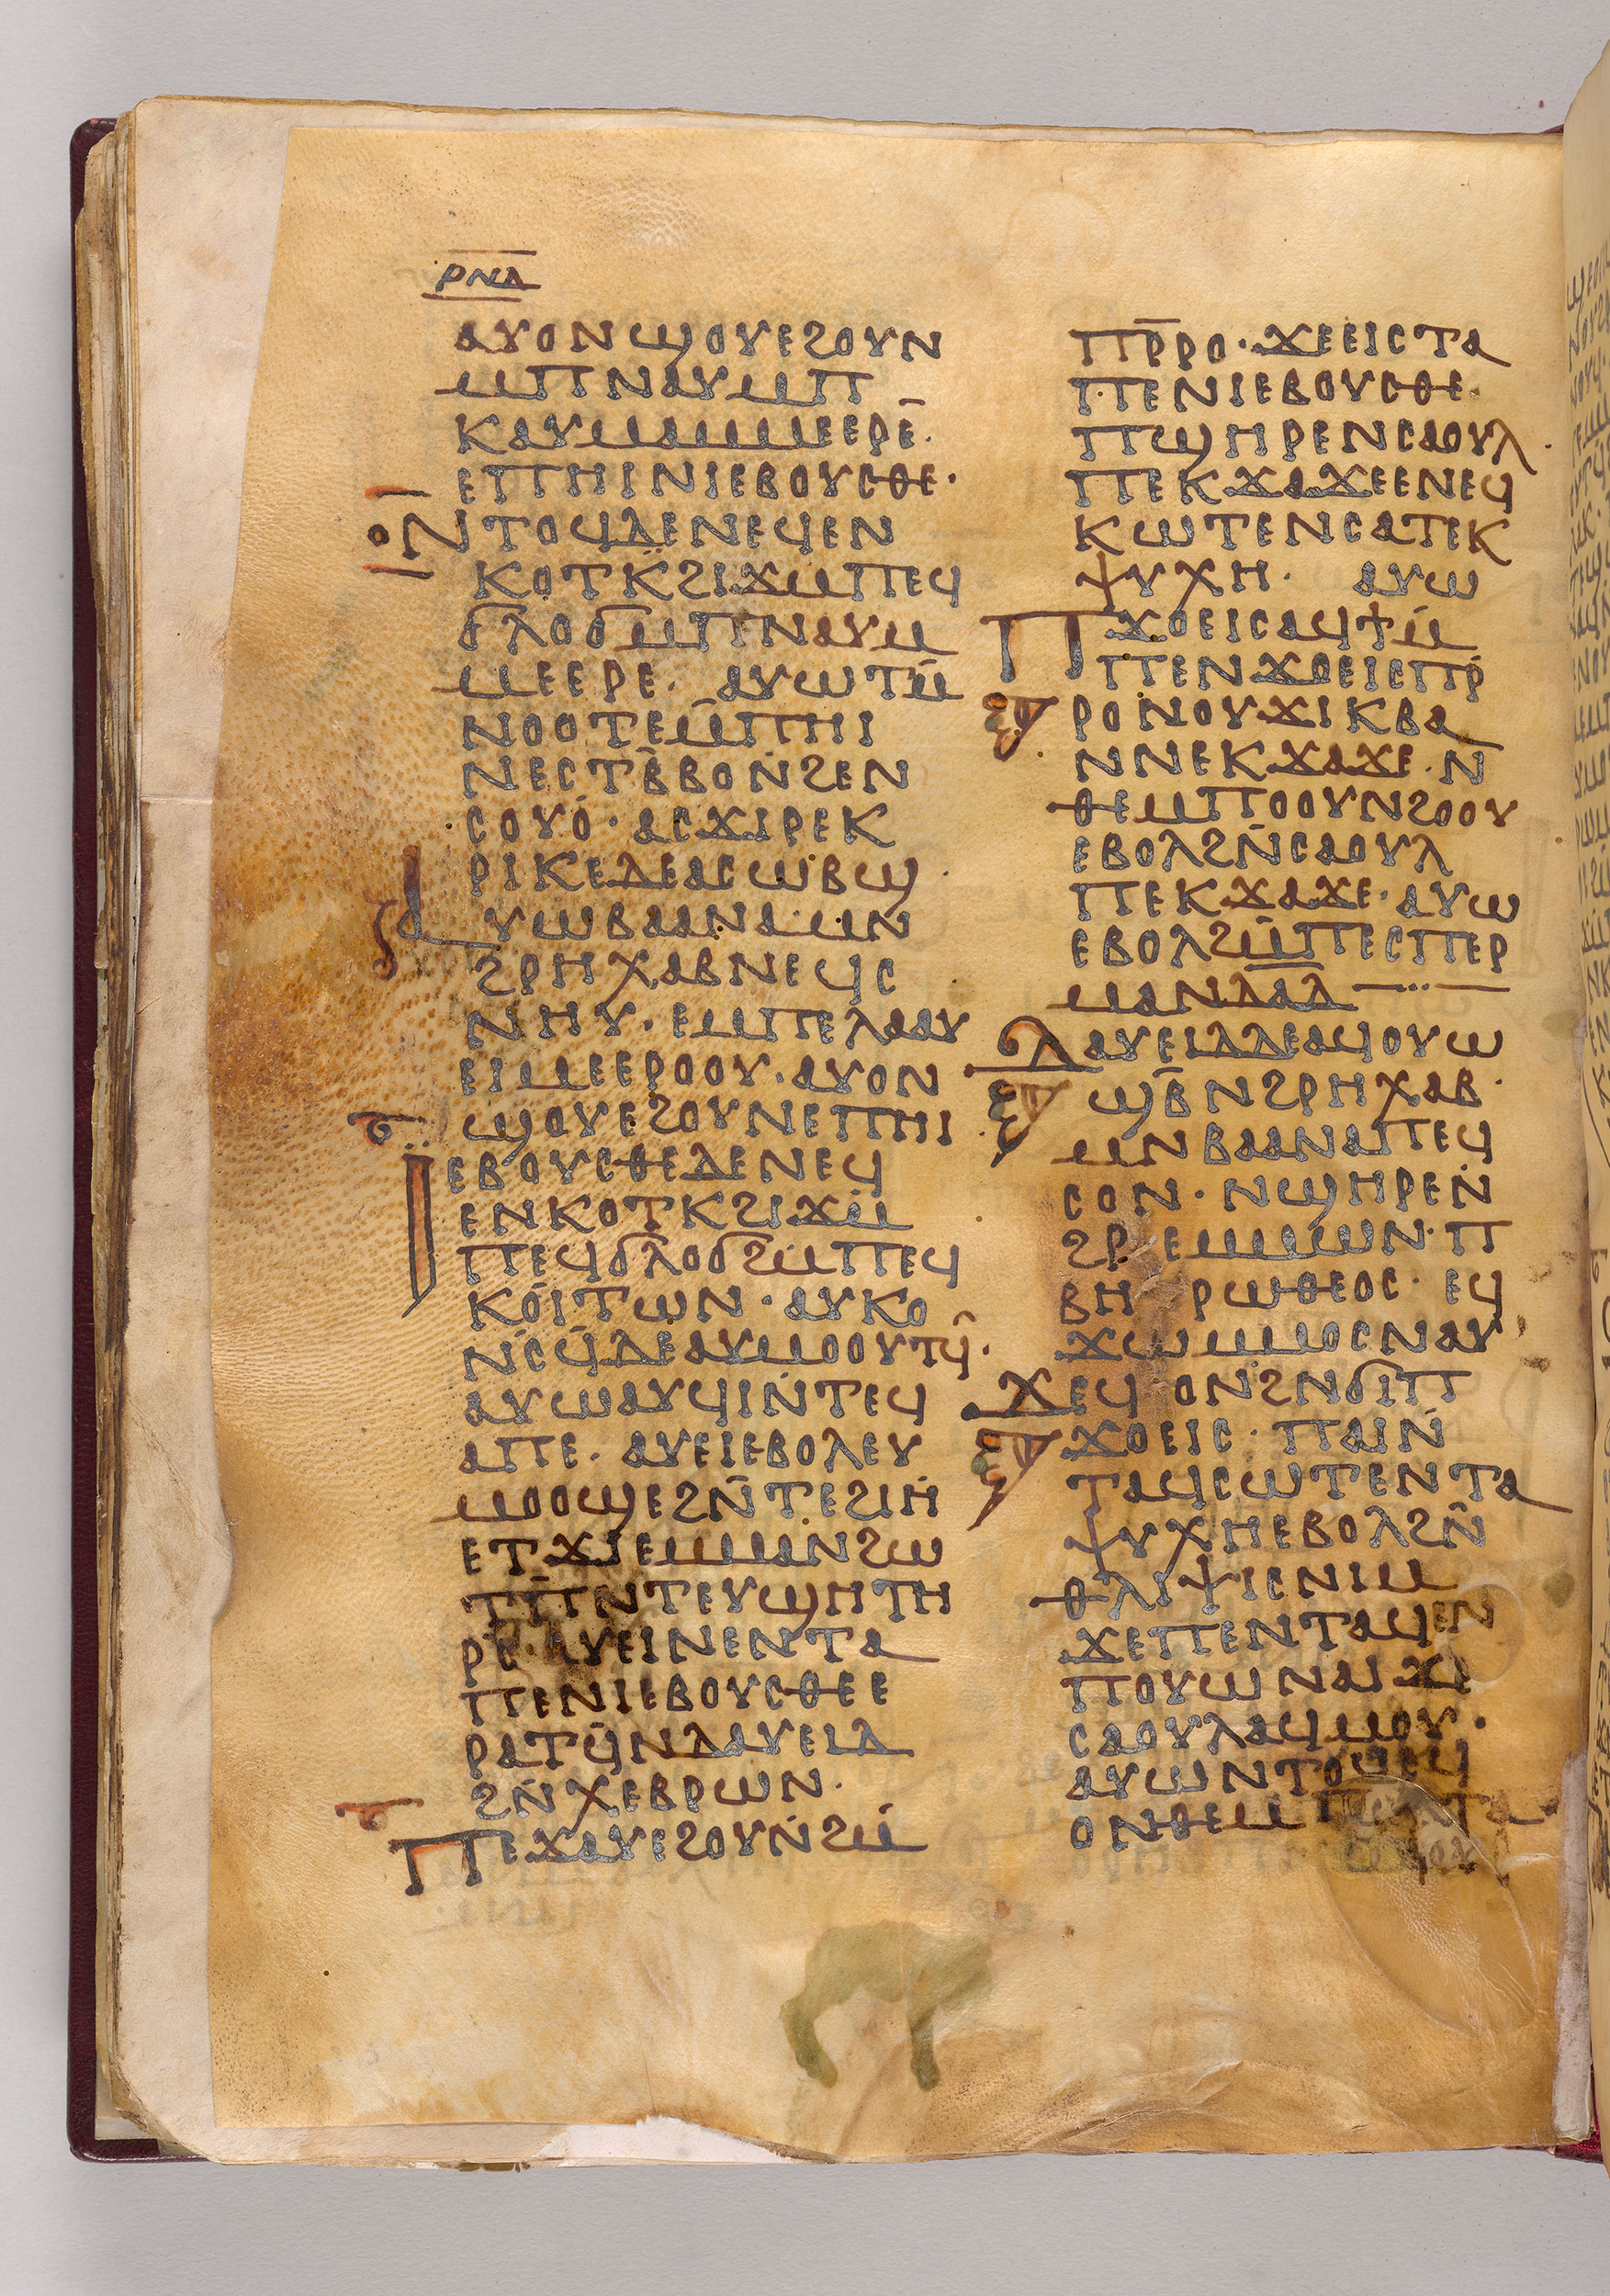 ⲣⲛⲇ
ⲁⲩⲟⲛϣⲟⲩⲉϩⲟⲩⲛ
ⲙⲡⲛⲁⲩⲙⲡ
ⲕⲁⲩⲙⲁⲙⲙⲉⲉⲣⲉ̄·
ⲉⲡⲏⲓⲛⲓⲉⲃⲟⲩⲥⲑⲉ·
ⲛⲧⲟϥⲇⲉⲛⲉϥⲉⲛ
ⲕⲟⲧⲕϩⲓϫⲙⲡⲉϥ
ϭⲗⲟϭⲙ̄ⲡⲛⲁⲩⲙ
ⲙⲉⲉⲣⲉ· ⲁⲩⲱⲧⲙ̄
ⲛⲟⲟⲧⲉⲙ̄ⲡⲏⲓ
ⲛⲉⲥⲧⲃ̄ⲃⲟⲛ̄ϩⲉⲛ
ⲥⲟⲩⲟ̇· ⲁⲥϫⲓⲣⲉⲕ
ⲣⲓⲕⲉⲇⲉⲁⲥⲱⲃϣ
ⲁⲩⲱⲃⲁⲁⲛⲁⲙⲛ
ϩⲣⲏⲭⲁⲃⲛⲉϥⲥ
ⲛⲏⲩ· ⲉⲙⲡⲉⲗⲁⲁⲩ
ⲉⲓⲙⲉⲉⲣⲟⲟⲩ· ⲁⲩⲟⲛ
ϣⲟⲩⲉϩⲟⲩⲛⲉⲡⲏⲓ
ⲓ̈ⲉⲃⲟⲩⲥⲑⲉⲇⲉⲛⲉϥ
ⲉⲛⲕⲟⲧⲕϩⲓϫⲙ
ⲡⲉϥϭⲗⲟϭϩⲙⲡⲉϥ
ⲕⲟⲓⲧⲱⲛ· ⲁⲩⲕⲟ
ⲛⲥϥ̄ⲇⲉⲁⲩⲙⲟⲟⲩⲧϥ̄·
ⲁⲩⲱⲁⲩϥⲓⲛ̄ⲧⲉϥ
ⲁⲡⲉ· ⲁⲩⲉⲓⲉⲃⲟⲗⲉⲩ
ⲙⲟⲟϣⲉϩⲛ̄ⲧⲉϩⲓⲏ
ⲉⲧϫⲓⲉⲙⲙⲁⲛϩⲱ
ⲧⲡ̄ⲛⲧⲉⲩϣⲏⲧⲏ
ⲣⲥ· ⲁⲩⲉⲓⲛⲉⲛⲧⲁ
ⲡⲉⲛⲓⲉⲃⲟⲩⲥⲑⲉⲉ
ⲣⲁⲧϥ̄ⲛⲇⲁⲩⲉⲓⲇ
ϩⲛ̄ⲭⲉⲃⲣⲱⲛ·
ⲡⲉϫⲁⲩⲉϩⲟⲩⲛϩⲙ̄
ⲡⲣ̄ⲣⲟ· ϫⲉⲉⲓⲥⲧⲁ
ⲡⲉⲛⲓⲉⲃⲟⲩⲥⲑⲉ·
ⲡϣⲏⲣⲉⲛⲥⲁⲟⲩⲗ·
ⲡⲉⲕϫⲁϫⲉⲉⲛⲉϥ
ⲕⲱⲧⲉⲛⲥⲁⲧⲉⲕ
ⲯⲩⲭⲏ· ⲁⲩⲱ
ⲡϫⲟⲉⲓⲥⲁϥϯⲙ̄
ⲡⲉⲛϫⲟⲉⲓⲥⲡⲣ̄
ⲣⲟⲛⲟⲩϫⲓⲕⲃⲁ
ⲛⲛⲉⲕϫⲁϫⲉ·ⲛ
ⲑⲉⲙⲡⲟⲟⲩⲛϩⲟⲟⲩ
ⲉⲃⲟⲗϩⲛ̄ⲥⲁⲟⲩⲗ
ⲡⲉⲕϫⲁϫⲉ· ⲁⲩⲱ
ⲉⲃⲟⲗϩⲙ̄ⲡⲉⲥⲡⲉⲣ
ⲙⲁⲛⲇⲁ̄ⲇ
ⲇⲁⲩⲉⲓⲇⲇⲉⲁϥⲟⲩⲱ
ϣⲃ̄ⲛϩⲣⲏⲭⲁⲃ·
ⲙⲛⲃⲁⲁⲛⲁⲡⲉϥ
ⲥⲟⲛ· ⲛϣⲏⲣⲉⲛ̄
ϩⲣⲉⲙⲙⲱⲛ·ⲡ
ⲃⲏⲣⲱⲑⲉⲟⲥ· ⲉϥ
ϫⲱⲙⲙⲟⲥⲛⲁⲩ
ϫⲉϥⲟⲛϩⲛϭⲓⲡ
ϫⲟⲉⲓⲥ· ⲡⲁⲓⲛ̄
ⲧⲁϥⲥⲱⲧⲉⲛⲧⲁ
ⲯⲩⲭⲏⲉⲃⲟⲗϩⲛ̄
ⲑⲗⲓⲯⲓⲥⲛⲓⲙ
ϫⲉⲡⲉⲛⲧⲁϥⲉⲛ
ⲡⲟⲩⲱⲛⲁⲓϫⲉ
ⲥⲁⲟⲩⲗⲁϥⲙⲟⲩ·
ⲁⲩⲱⲛⲧⲟϥⲉϥ
ⲟⲛⲑⲉⲙ